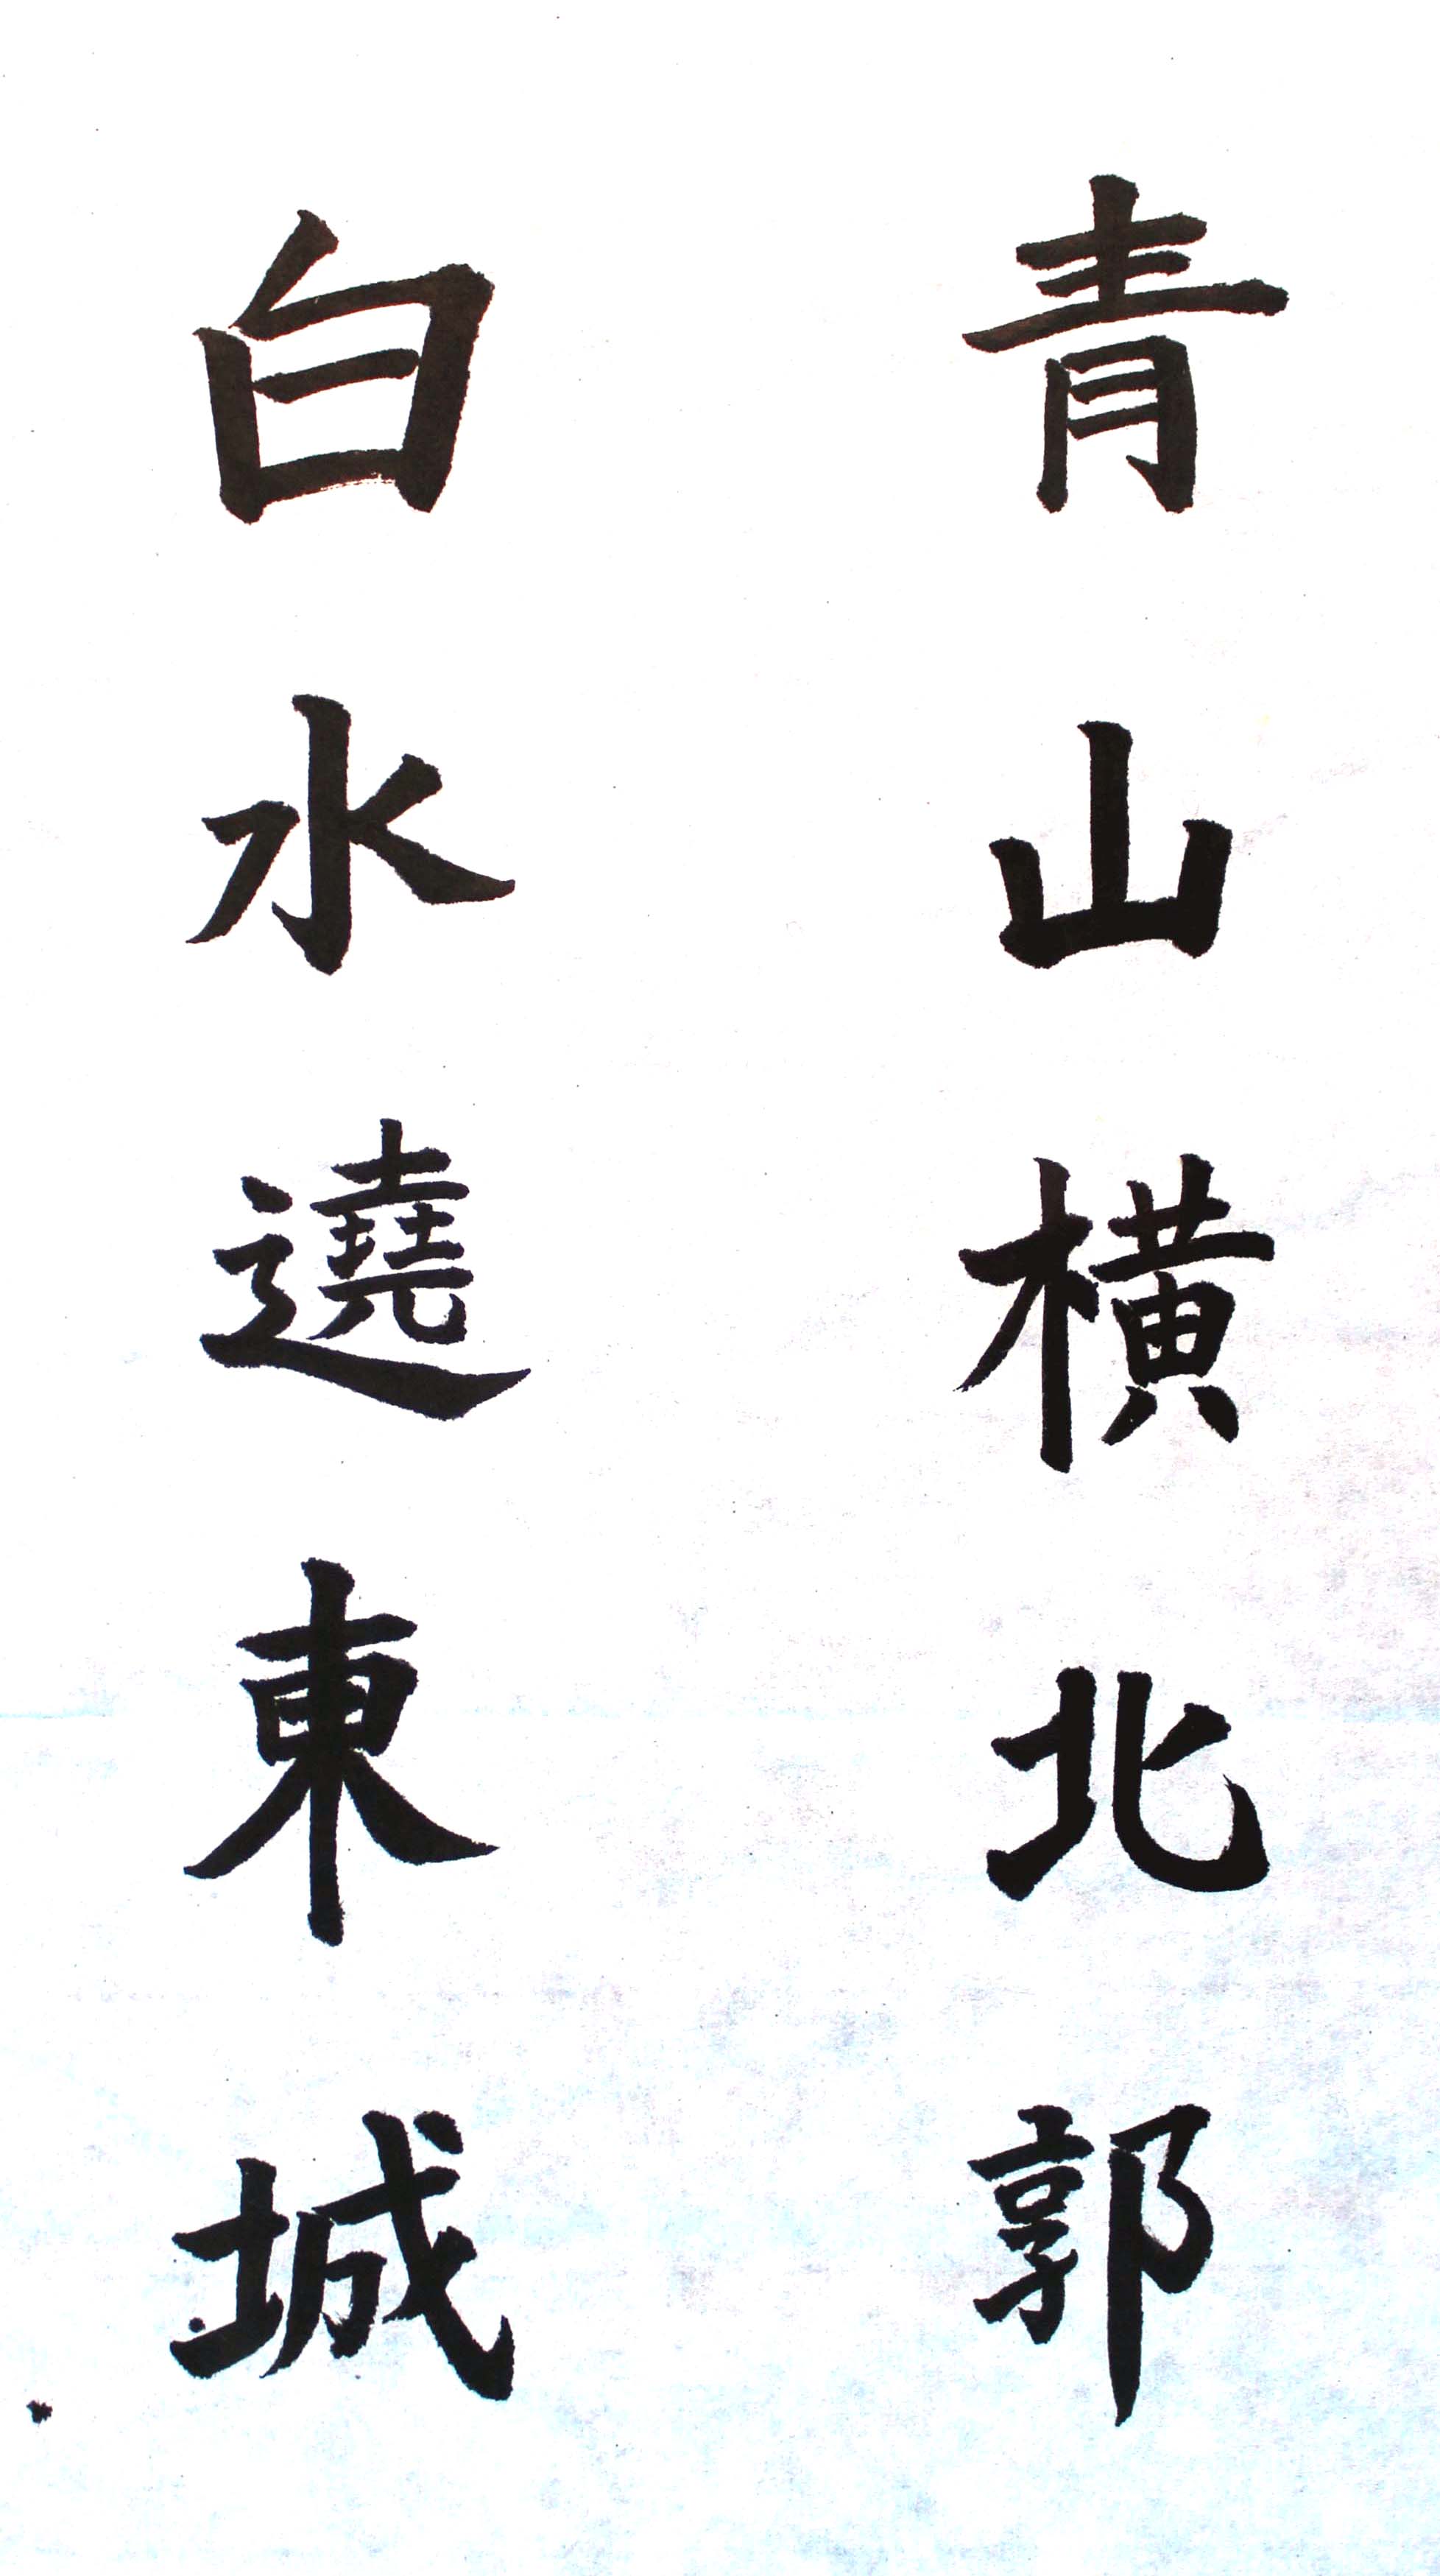 青山橫北郭
白水遶東城